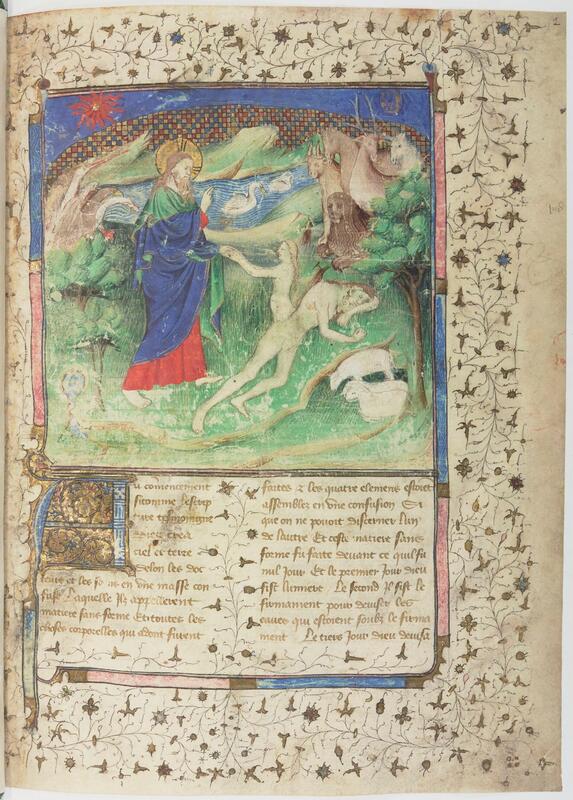 u comencement
sicomme lescrip
ture tesmoingne
dieu crea
ciel et terre
Selon les doc
teurs et les sains en une masse con
fuse Laquelle ilz appellerent
matiere sans forme Et toutes les
choses corporelles qui adont furent
faites & les quatre elemens estoiet
assemblez en une confusion Si
que on ne pouoit discerner lun
de lautre Et ceste matiere sans
forme fu faite devant ce quil fu
nul jour Et le premier jour dieu
fist lumiere Le second Il fist le
firmament pour deviser les
eaues qui estoient soubz le firma
ment Le tiers Jour dieu devisa